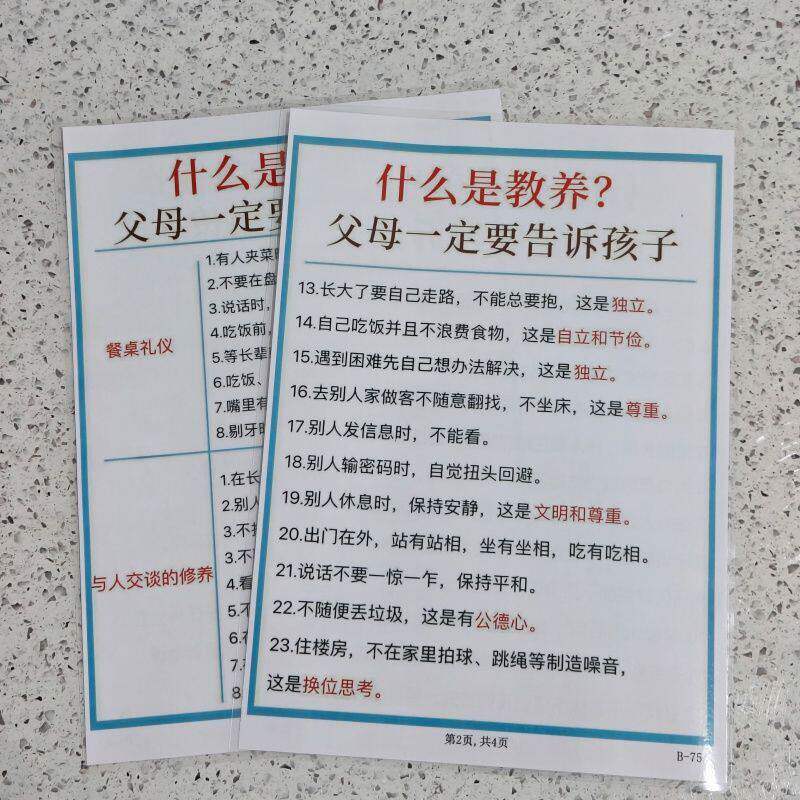 什么是
父母一定要
餐桌礼仪
1.有人夹菜
2.不要在盘
3.说话时，
4.吃饭前，
5.等长辈
6.吃饭、
7.嘴里有
8.剔牙时
与人交谈的修养
1.在长
2.别人
3.不
3.不
4.看
5.不
6.在
7.不
8
什么是教养？
父母一定要告诉孩子
13.长大了要自己走路，不能总要抱，这是独立。
14.自己吃饭并且不浪费食物，这是自立和节俭。
15.遇到困难先自己想办法解决，这是独立。
16.去别人家做客不随意翻找，不坐床，这是尊重。
17.别人发信息时，不能看。
18.别人输密码时，自觉扭头回避。
19.别人休息时，保持安静，这是文明和尊重。
20.出门在外，站有站相，坐有坐相，吃有吃相。
21.说话不要一惊一乍，保持平和。
22.不随便丢垃圾，这是有公德心。
23.住楼房，不在家里拍球、跳绳等制造噪音，
这是换位思考。
第2页,共4页
B-75